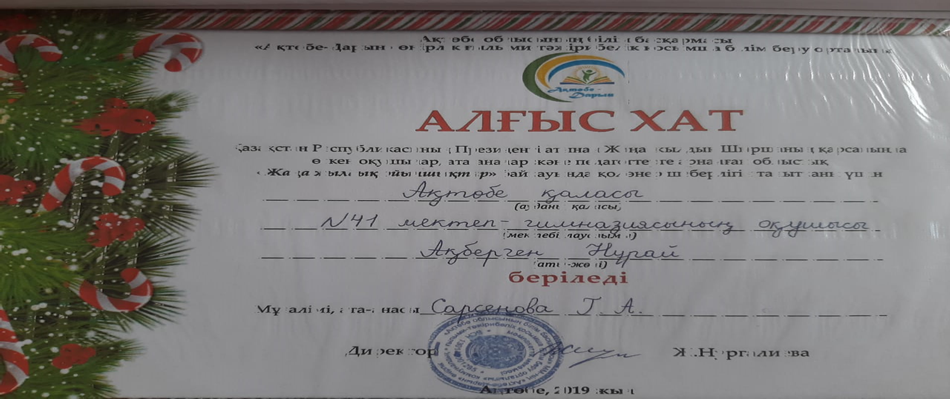 Ақтөбе облысының білім басқармасы
«Ақтөбе-Дарын» өңірлік ғылыми тәжірибелік қосымша білім беру орталығы
Ақтөбе-
Дарын
АЛҒЫС ХАТ
Қазақстан Республикасының Президенті атына Жаңа жылдық Шыршаның қарсаңында
өткен оқушылар, ата-аналар және педагогтерге арналған облыстық
«Жаңа жылдық ойыншықтар» байқауында қолөнер шеберлігі танытқаны үшін
Ақтөбе қаласы
(ауданы, қаласы)
N41 мектеп-гимназиясының оқушысы
(мектебі, лауазымы)
Ақберген Нұрай
(аты-жөні)
беріледі
Мұғалімі, ата-анасы Сарсенова Г. А.
Директор Ж.Нурғалиева
Ақтөбе, 2019 жыл